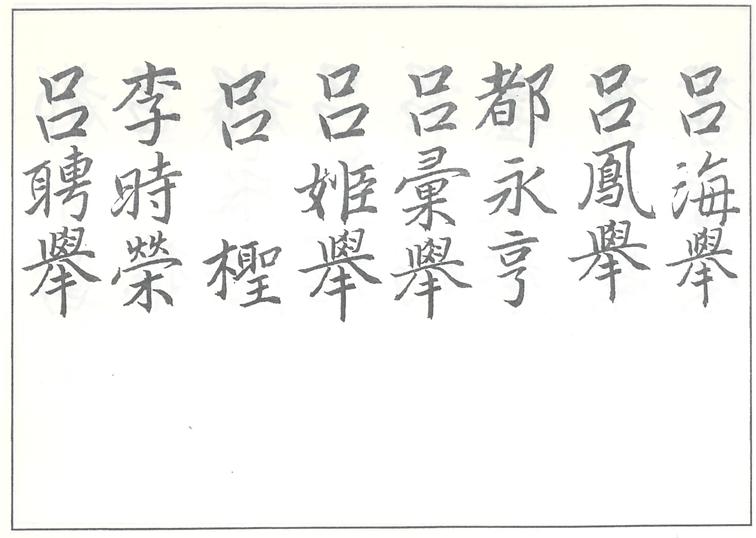 呂海舉
呂鳳舉
都永亨
呂彙舉
呂姬舉
呂檉
李時榮
呂聘舉